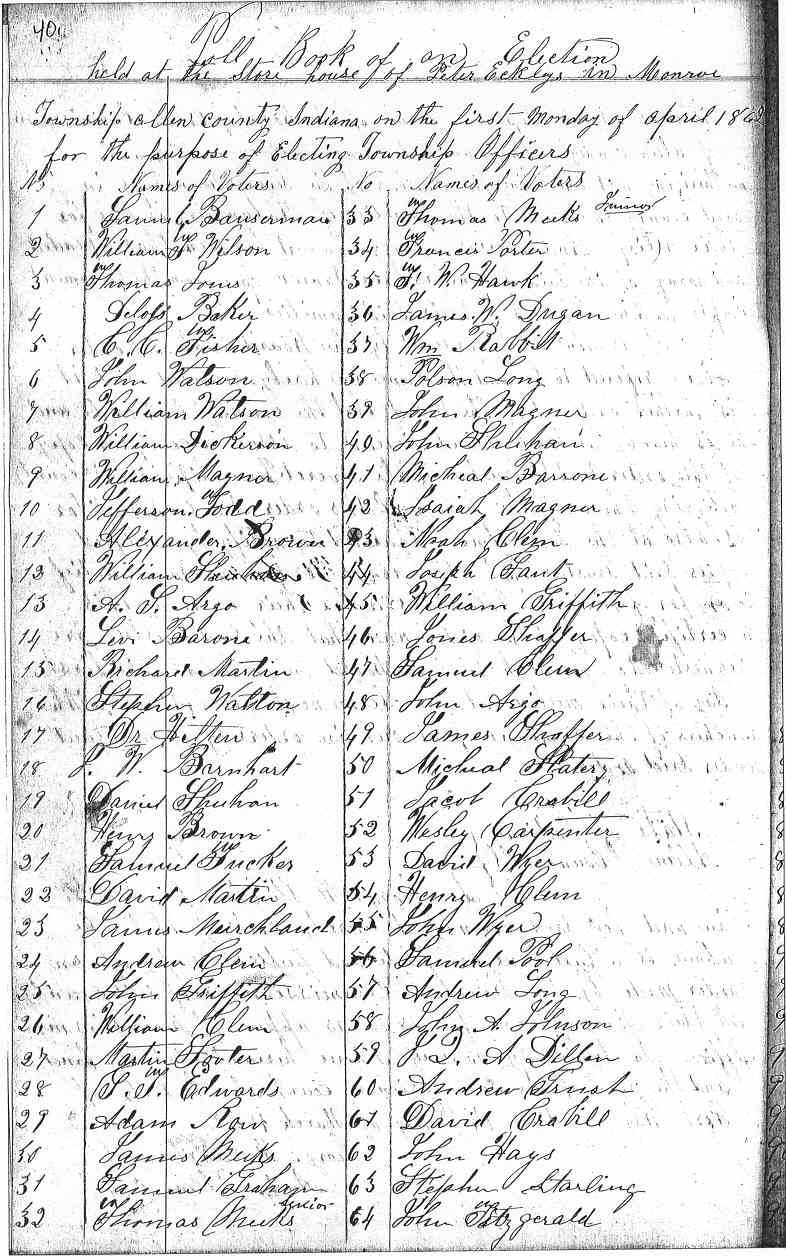 40.
Poll Book of an Election
held at the Store house of Peter Eckleys in Monroe
Township Allen county Indiana on the first Monday of April 186
for the purpose of Electing Township Officers
No Names of Voters No Names of Voters
1 Saml Bauserman 33 Thomas Meeks Junior
2 William Wilson 34 Francis Porter
3 Thomas Jones 35 W. Hawk
4 Deloss Baker 36 James W. Dugan
5 C. C. Fisher 37 Wm Rabbit
6 John Watson 38 Polson Long
7 William Watson 39 John Magner
8 William Dickerson 40 John Shuhan
9 William Magner 41 Micheal Barrone
10 Jefferson Todd 42 Isaiah Magner
11 Alexander Brown 43 Noah Clem
13 William 44 Joseph Faut
13 A. S. Argo 45 William Griffith
14 Levi Barone 46 Jones Shaffer
15 Richard Martin 47 Samuel Clem
16 Stephen Walton 48 John Argo
17 Dr Hilten 49 James Shaffer
18 J. W. Barnhart 50 Micheal Slatery
19 Daniel Shuhan 51 Jacob Crabill
20 Henry Brown 52 Wesley Carpenter
21 Samuel Tucker 53 David Wyer
22 David Martin 54 Henry Clem
23 James Murchland 55 John Wyer
24 Andrew Clem 56 Samuel Pool
25 John Griffith 57 Andrew Long
26 William Clem 58 John A. Johnson
27 Martin Footer 59 J. D. A Dillen
28 Edwards 60 Andrew Trush
29 Adam Row 61 David Crabill
30 James Meeks 62 John Hays
31 Samuel Graham 63 Stephen Starling
32 Thomas Meeks Senior 64 John Fitzgerald